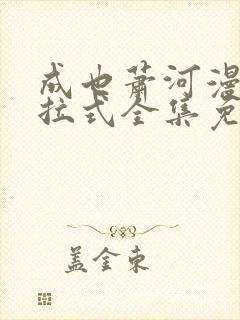 成也萧河漫
拉式全集免
盖金东